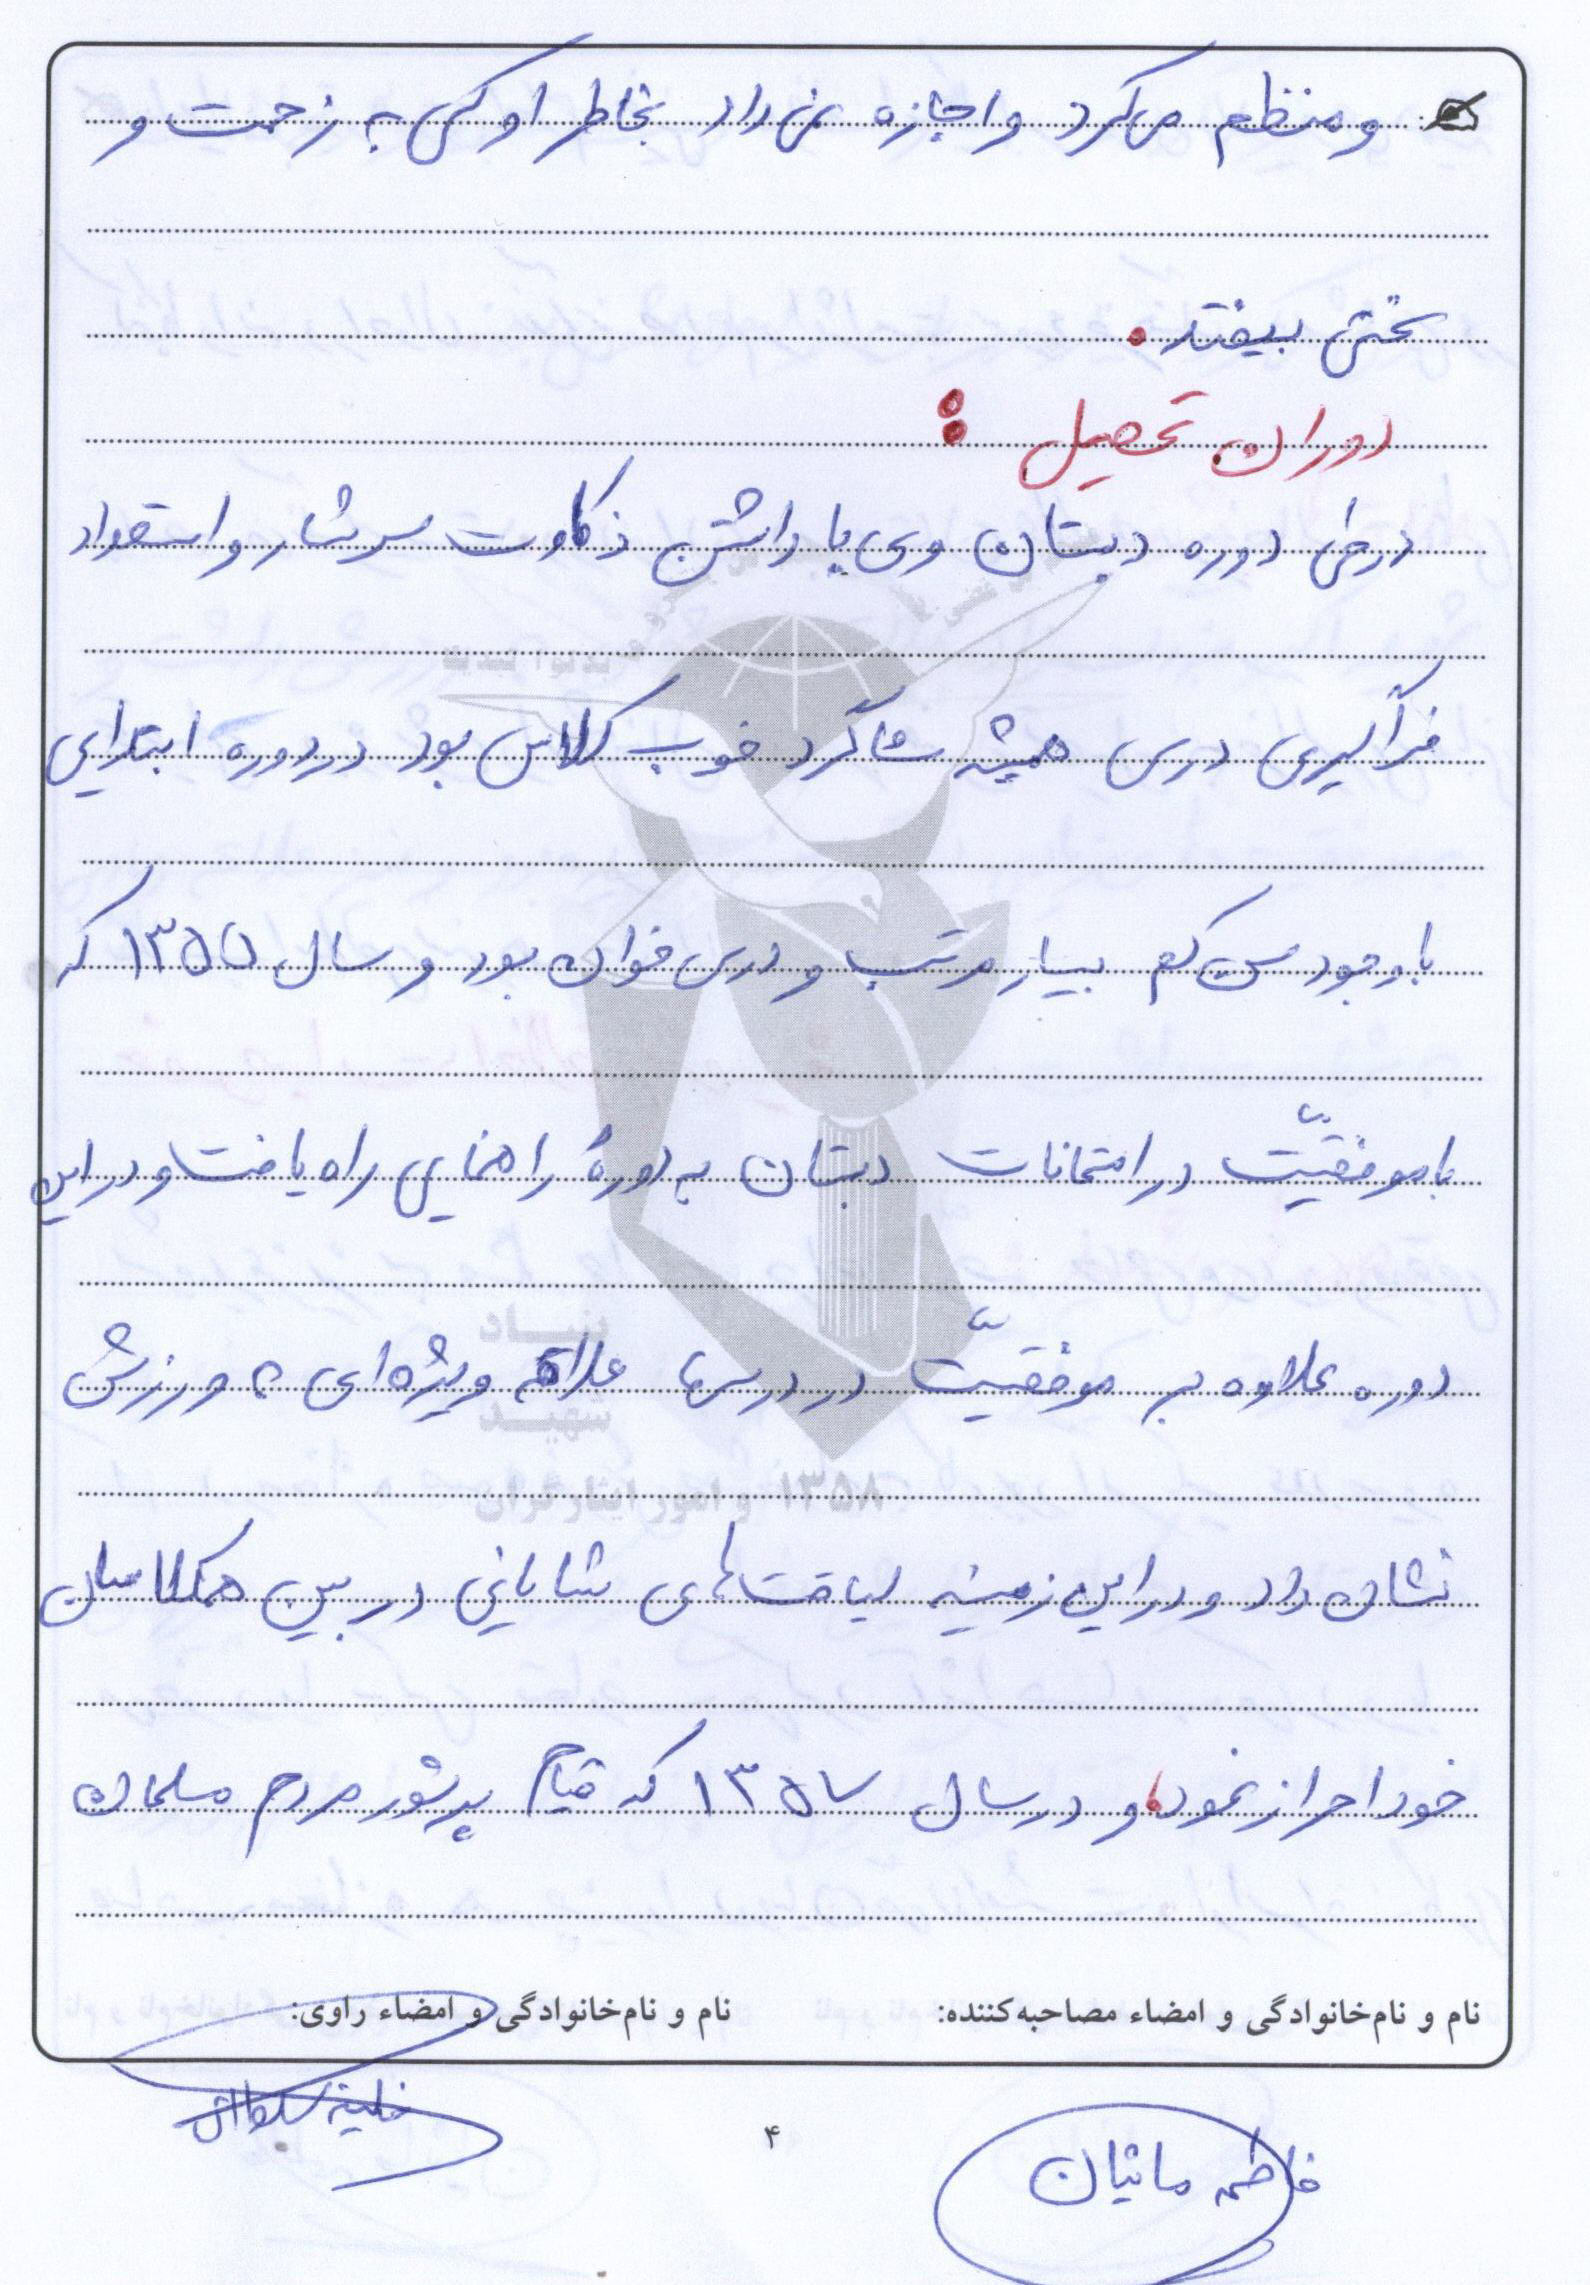 و منظم می‌کرد و اجازه نمی‌داد بخاطر او کسی به زحمت و
سختی بیفتد.
دوران تحصیل :
در طی دوره دبستان وی با داشتن ذکاوت سرشار و استعداد
فراگیری درس همیشه شاگرد خوب کلاس بود در دوره ابتدایی
با وجود سن کم بسیار مرتب و درس خوان بود و سال ۱۳۵۵ که
با موفقیّت در امتحانات دبستان به دورهٔ راهنمایی راه یافت و در این
دوره علاوه بر موفقیّت در درسها علاقه ویژه‌ای به ورزش
نشان داد و در این زمینه لیاقت‌های شایانی در بین همکلاسان
خود احراز نمود، و در سال ۱۳۵۷ که قیام پرشور مردم مسلمان
بنیاد
شهید
و امور ایثارگران ۱۳۵۸
نام و نام‌خانوادگی و امضاء مصاحبه‌کننده: نام و نام‌خانوادگی و امضاء راوی:
فاطمه مانیان
۴